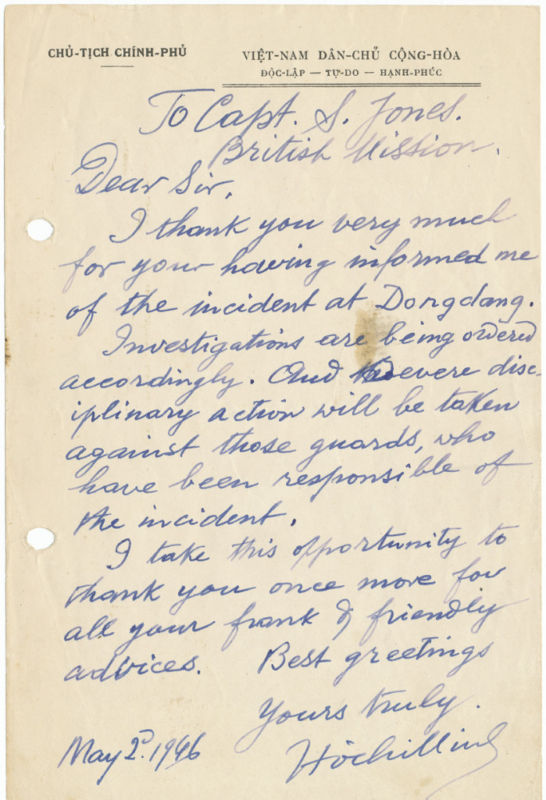 CHỦ-TỊCH CHÍNH-PHỦ
VIỆT-NAM DÂN-CHỦ CỘNG-HÒA
ĐỘC-LẬP — TỰ-DO — HẠNH-PHÚC
To Capt. S. Jones.
British Mission.
Dear Sir,
I thank you very much
for your having informed me
of the incident at Dongdang.
Investigations are being ordered
accordingly. And severe disc-
iplinary action will be taken
against those guards, who
have been responsible of
the incident.
I take this opportunity to
thank you once more for
all your frank & friendly
advices. Best greetings
Yours truly.
May 2d. 1946 Hôchiminh